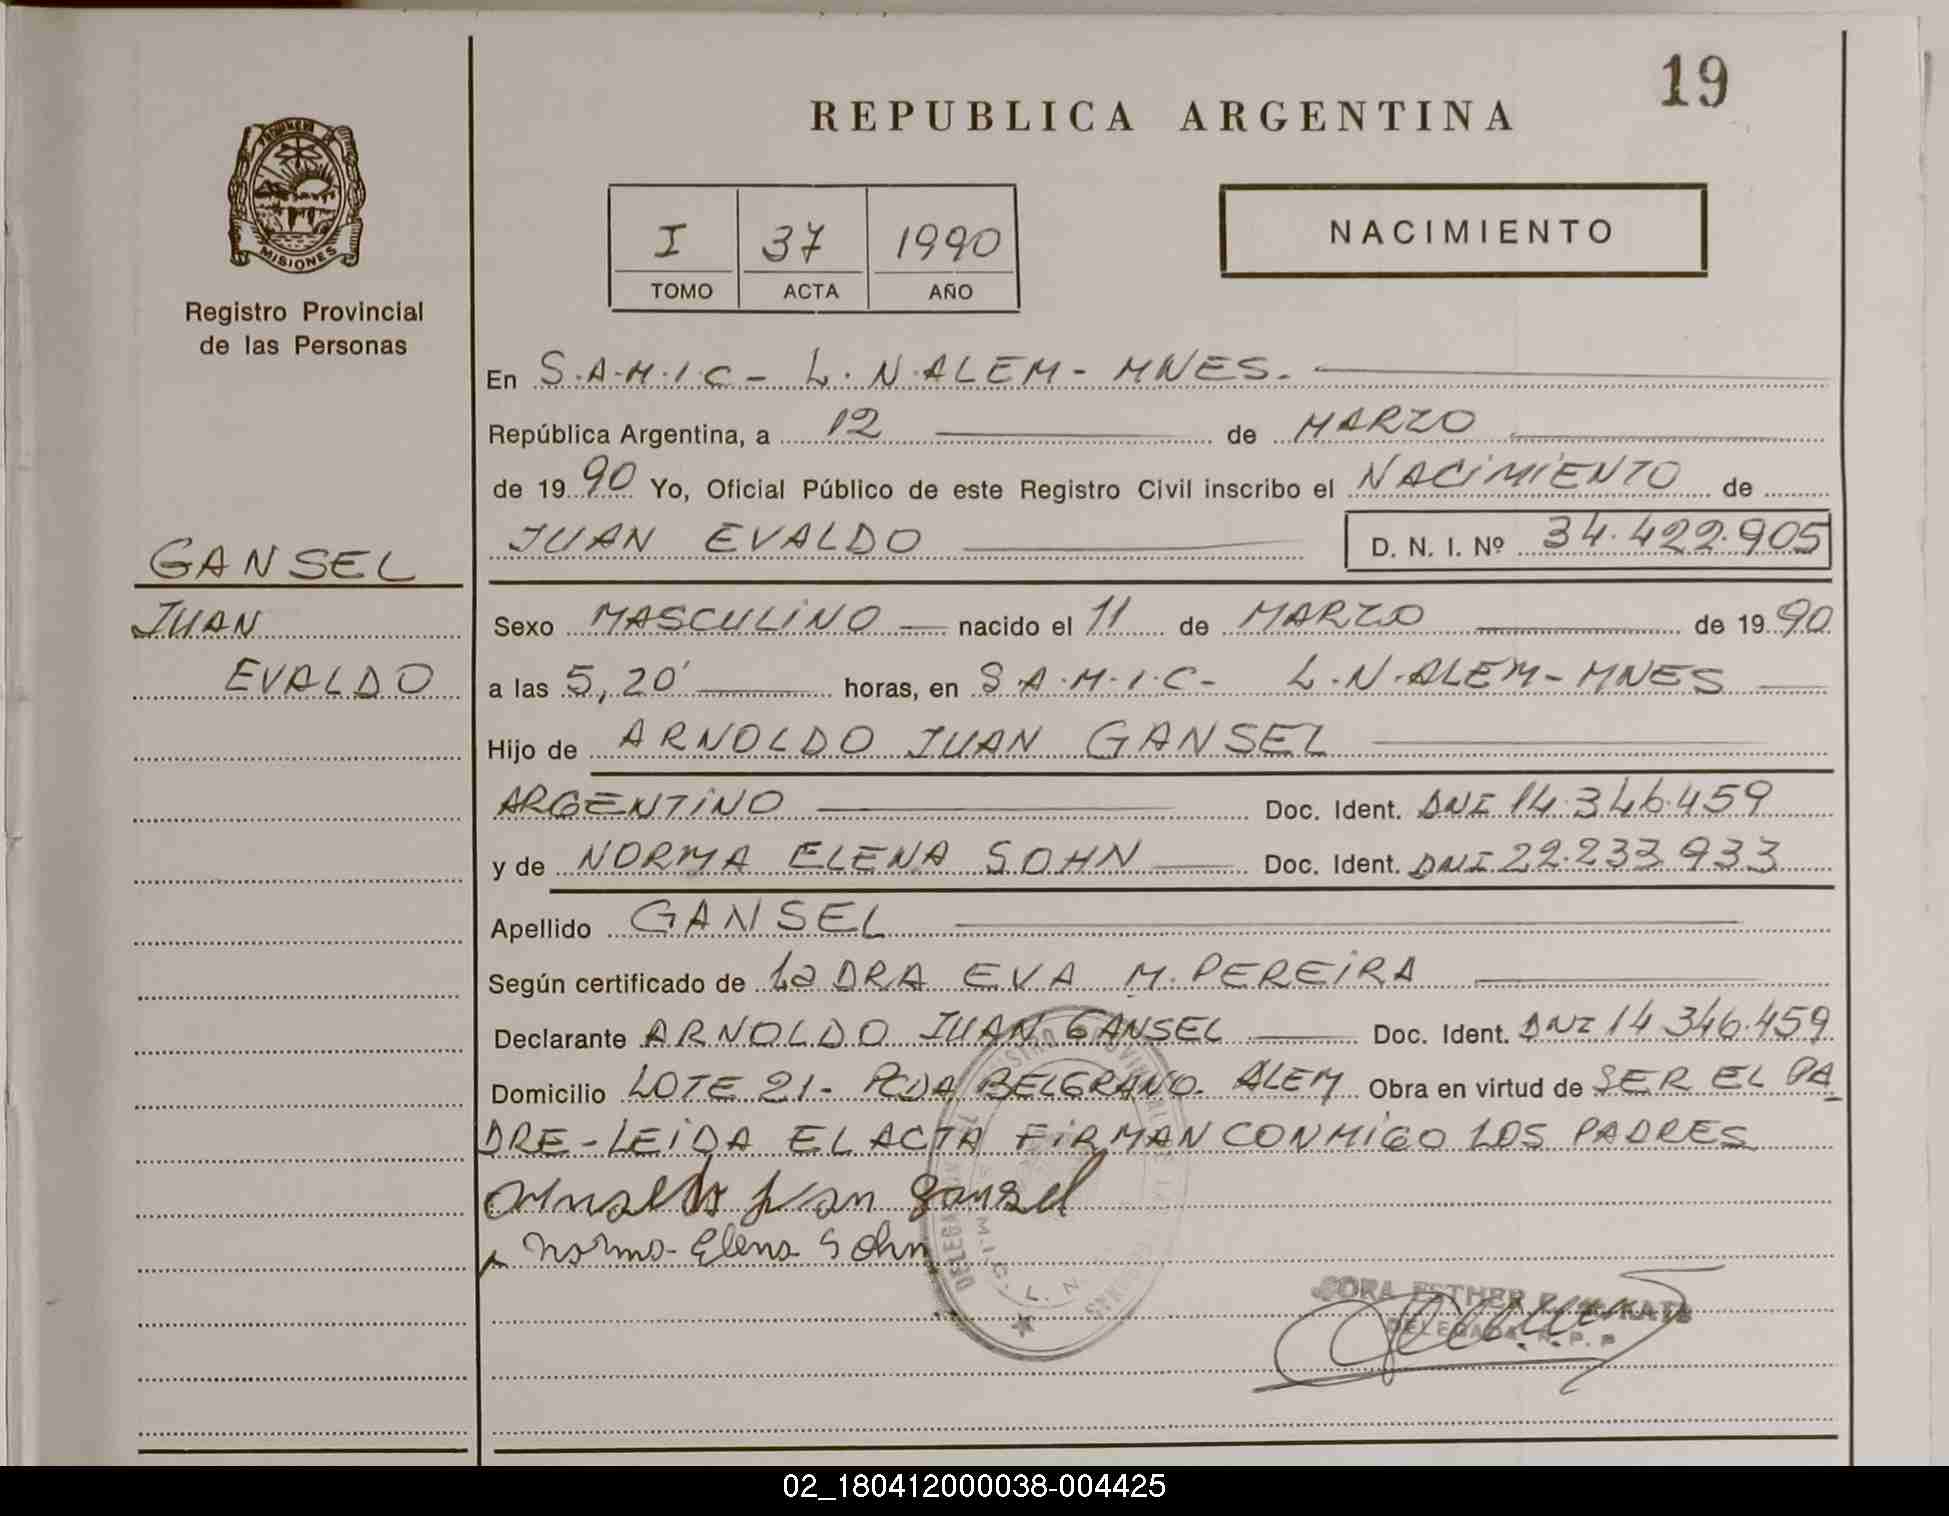 19
REPUBLICA ARGENTINA
MISIONES
Registro Provincial
de las Personas
I 37 1990
TOMO ACTA AÑO
NACIMIENTO
GANSEL
JUAN
EVALDO
En S.A.M.I.C - L.N.ALEM - MNES.
República Argentina, a 12 de MARZO
de 1990 Yo, Oficial Público de este Registro Civil inscribo el NACIMIENTO de
JUAN EVALDO D. N. I. Nº 34.422.905
Sexo MASCULINO nacido el 11 de MARZO de 1990
a las 5,20' horas, en S.A.M.I.C - L.N.ALEM - MNES
Hijo de ARNOLDO JUAN GANSEL
ARGENTINO Doc. Ident. DNI 14.346.459
y de NORMA ELENA SOHN Doc. Ident. DNI 22.233.933
Apellido GANSEL
Según certificado de La DRA EVA M. PEREIRA
Declarante ARNOLDO JUAN GANSEL Doc. Ident. DNI 14 346.459
Domicilio LOTE 21 - PCDA BELGRANO - ALEM Obra en virtud de SER EL PA
DRE - LEIDA EL ACTA FIRMAN CONMIGO LOS PADRES
Arnoldo juan gansel
Norma Elena Sohn
ESTHER
DELEGADA R. P. P
02_180412000038-004425